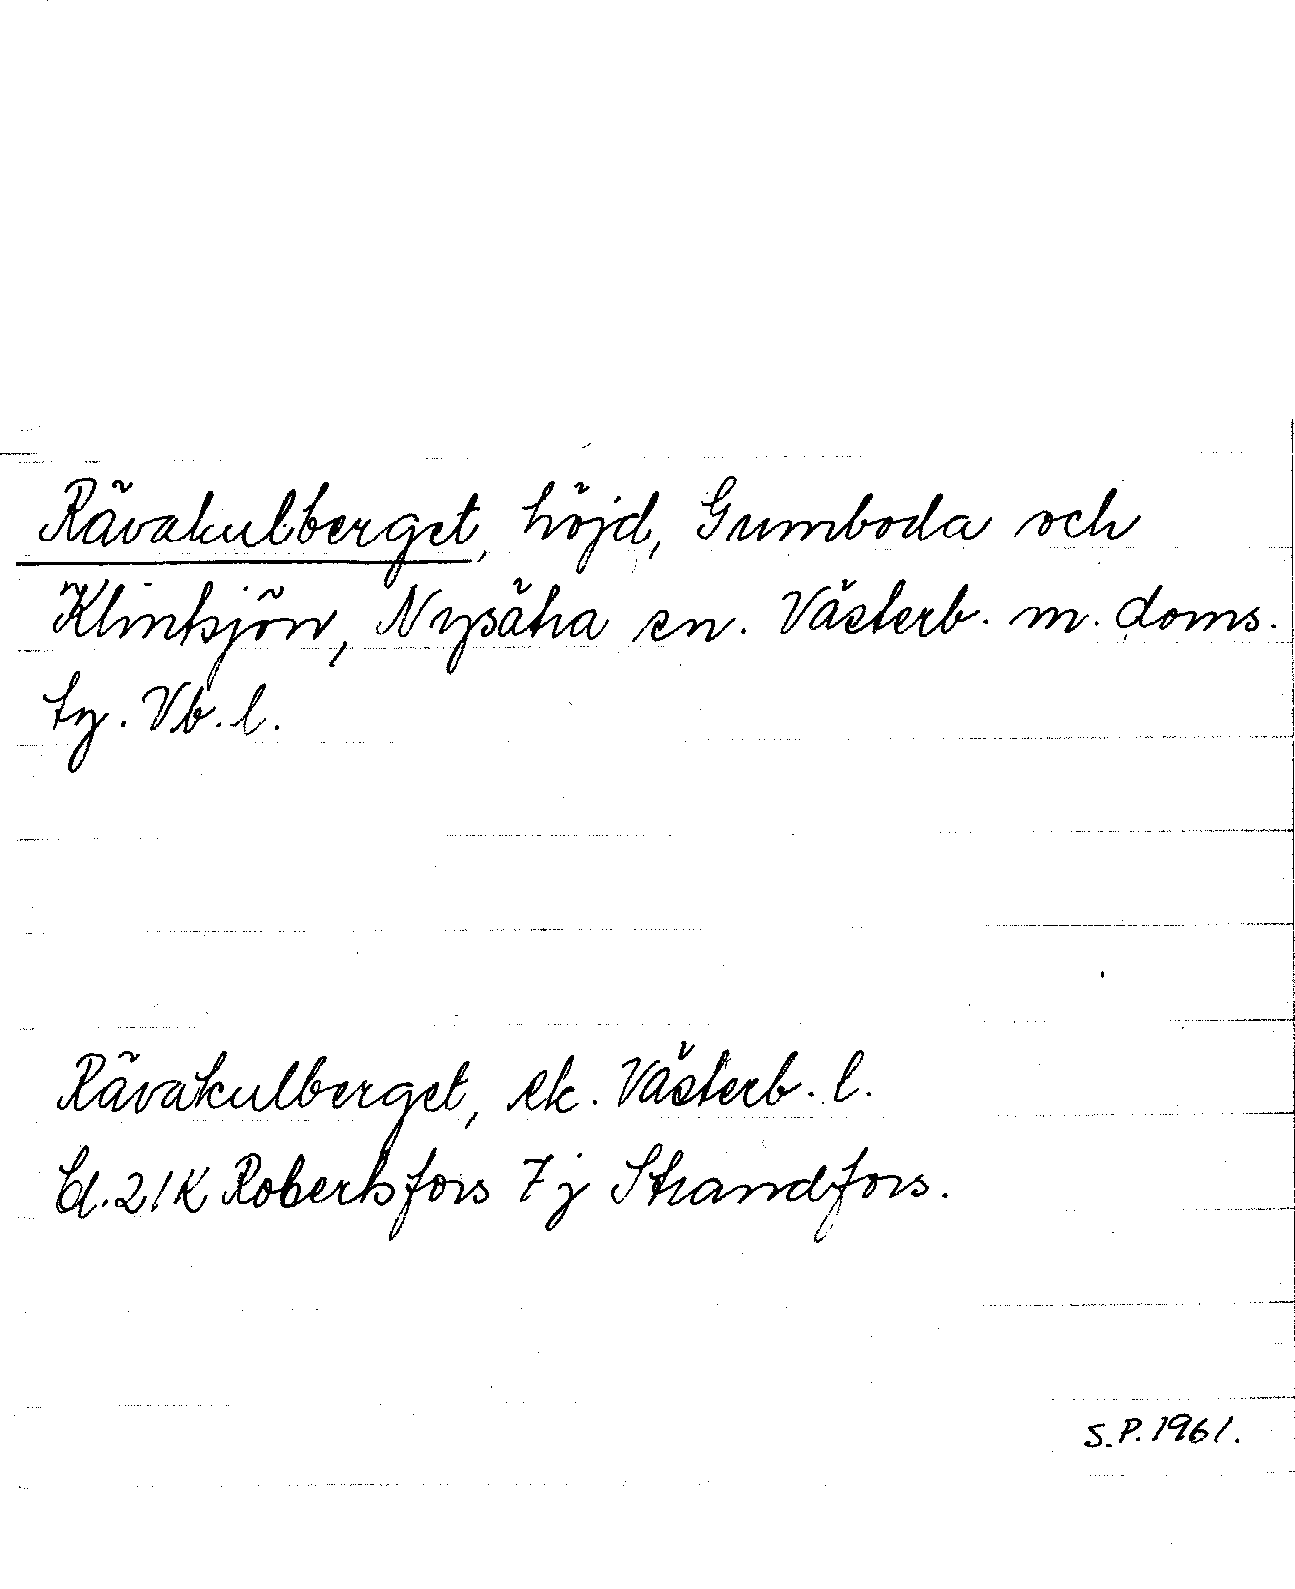 Rävakulberget, höjd, Gumboda och
Klintsjön, Nysätra sn. Västerb. m. doms.
tg. Vb. l.
Rävakulberget, ek. Västerb. l.
bl. 21K Robertsfors 7j Strandfors.
S.P. 1961.